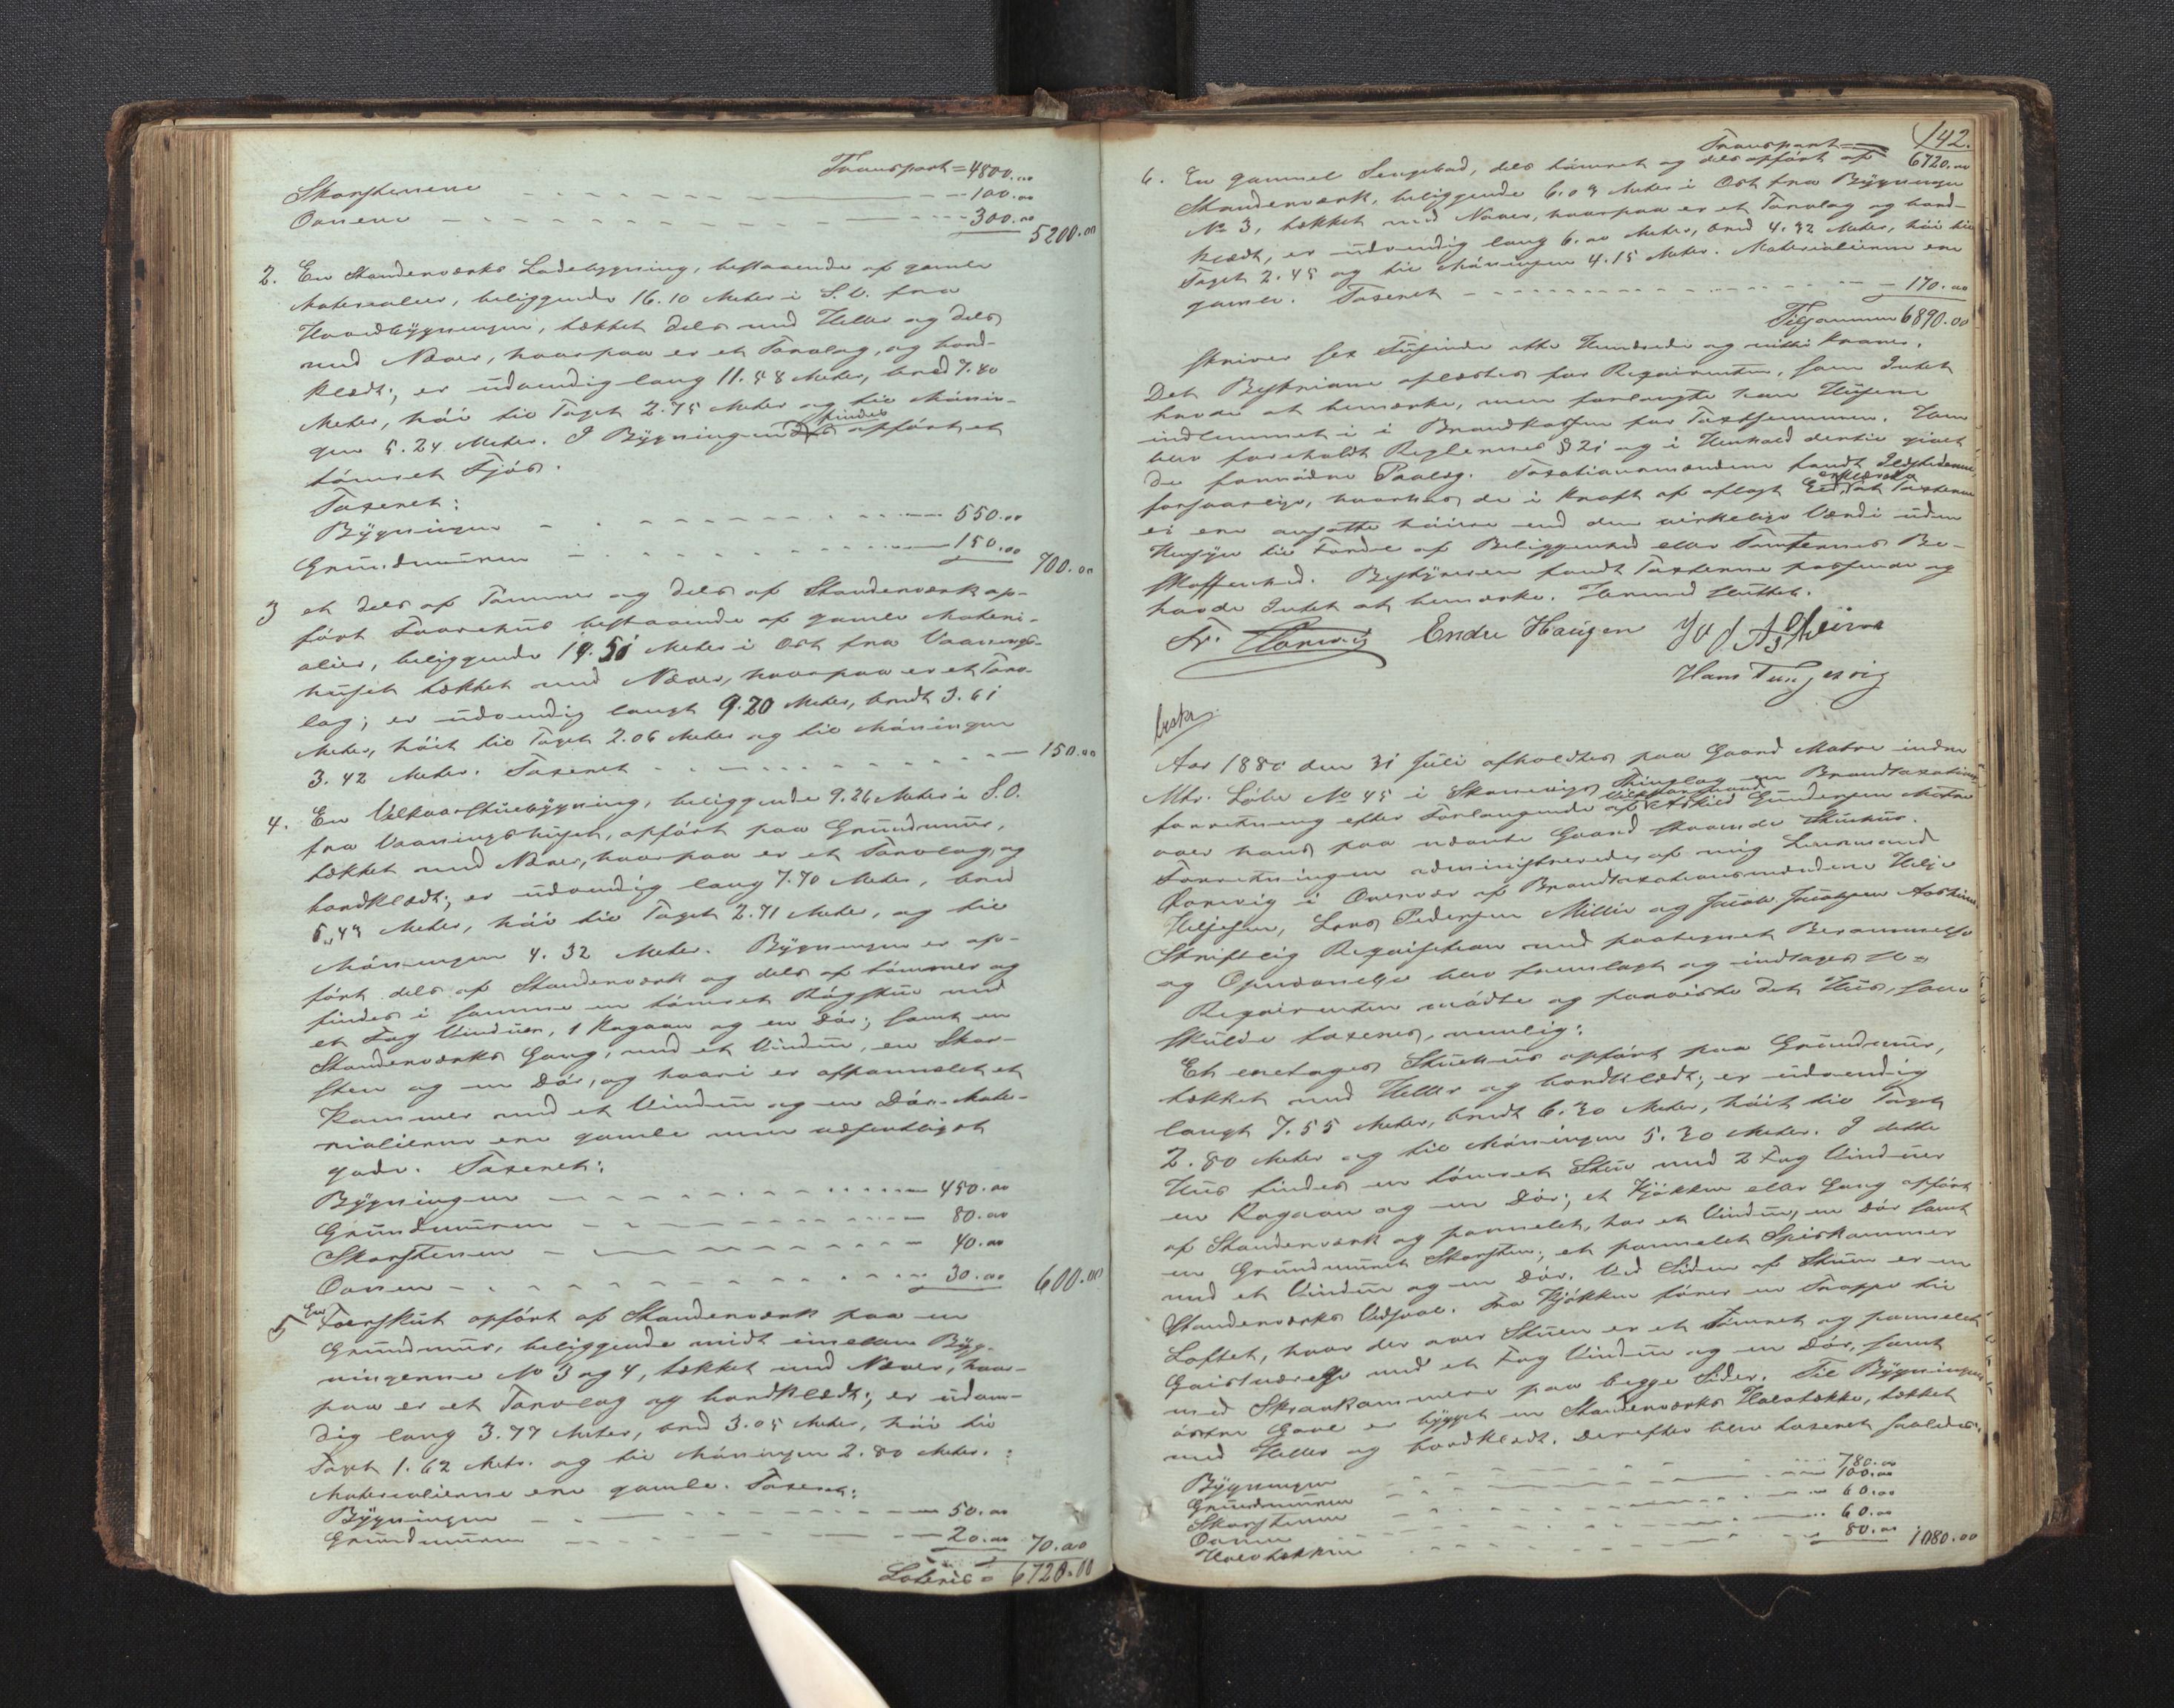 Transport = 4800.00
Skorstenene - - - 100.00
Ovnene - - - 300.00
5200.00
2. En Standerværks Ladebygning, bestaaende af gamle
Materialier, beliggende 16.10 Meter i S.V. fra
Hovedbygningen, tækket dels med Heller og dels
med Næver, hvorpaa er et Torvlag, og bord-
klædt; er udvendig lang 11.58 Meter, bred 7.80
Meter, høi til Taget 2.75 Meter og til Mønin-
gen 5.24 Meter. I Bygningen findes opført et
tømret Fjøs.
Taxeret:
Bygningen - - - 550.00
Grundmuren - - - 150.00
700.00
3 et dels af Tømmer og dels af Standerværk op-
ført Faarehus bestaaende af gamle Materi-
alier, beliggende 19.51 Meter i Ost fra Vaanings-
huset tækket med Næver, hvorpaa er et Torv-
lag; er udvendig langt 9.20 Meter, bredt 3.61
Meter, høit til Taget 2.06 Meter og til Møningen
3.42 Meter. Taxeret - - - 150.00
4. En Velkaarstuebygning, beliggende 9.26 Meter i S.O.
fra Vaaningshuset, opført paa Grundmur,
tækket med Næver, hvorpaa er et Torvlag, og
bordklædt; er udvendig lang 7.70 Meter, bred
5.49 Meter, høi til Taget 2.71 Meter, og til
Møningen 4.32 Meter. Bygningen er op-
ført dels af Standerværk og dels af tømmer og
findes i samme en tømret Røgstue med
et Fag Vinduer, 1 Kogeovn og en Dør; samt en
Standerværks Gang, med et Vindu, en Skor-
sten og en Dør, og hvori er afpannelet et
Kammer med et Vindu og en Dør. Mate-
rialierne ere gamle men væsentligst
gode. Taxeret:
Bygningen - - - 450.00
Grundmuren - - - 80.00
Skorstenen - - - 40.00
Ovnen - - - 30.00
600.00
5 En Torvskut opført af Standerværk paa en
Grundmur, beliggende midt imellem Byg-
ningerne No 3 og 4, tækket med Næver, hvor-
paa er et Torvlag og bordklædt; er udven-
dig lang 3.77 Meter, bred 3.05 Meter, høi til
Taget 1.62 Metr. og til Møningen 2.80 Meter.
Materialierne ere gamle. Taxeret:
Bygningen - - - 50.00
Grundmuren - - - 20.00 70.00
Lateris = 6720.00
142.
Transport = 6720.00
6. En gammel Sengebod, dels tømret og dels opført af
Standerværk, beliggende 6.03 Meter i Ost fra Bygningen
No 3, tækket med Næver, hvorpaa er et Torvlag og bord-
klædt, er udvendig lang 6.00 Meter, bred 4.32 Meter, høi til
Taget 2.45 og til Møningen 4.15 Meter. Materialierne ere
gamle. Taxeret - - - 170.00
Tilsammen 6890.00
skriver sex Tusinde otte Hundrede og nitti Kroner.
Det Beskrevne oplæstes for Reqvirenten, som Intet
havde at bemærke, men forlangte han Husene
indlemmet i i Brandkassen for Taxtsummen. Han
blev foreholdt Reglernes § 21 og i Henhold dertil givet
de fornødne Paalæg. Taxationsmændene fandt Ildstederne
forsvarlige, hvorhos de i Kraft af aflagt Eed erklærede at Taxterne
ei ere ansatte høiere end den virkelige Værdi uden
Hensyn til Fordel af Beliggenhed eller Tomternes Be-
skaffenhed. Bestyreren fandt Taxterne passende og
havde Intet at bemærke. Hermed sluttet.
Endre Haugen
Hans Tungesvig
Aar 1880 den 31 Juli afholdtes paa Gaard Matre indre
Mtr. Løbe No 45 i Skonevigs Thinglag en Brandtaxations-
forretning efter Forlangende af Velkaarsmand Askild Gundersen Matre
over hans paa nævnte Gaard staaende Stuehus.
Forretningen administreredes af mig Lensmand
i Overvær af Brandtaxationsmændene Helje
Heljesen, Lars Pedersen Millie og Jacob Jacobsen Aarhim.
Skriftlig Reqvisition med paategnet Berammelse
og Opnævnelse blev fremlagt og indtages
Reqvirenten mødte og foreviste det Hus, som
skulde taxeres, nemlig:
Et enetages Stuehus opført paa Grundmur,
tækket med Heller og bordklædt; er udvendig
langt 7.55 Meter, bredt 6.30 Meter, høit til Taget
2.80 Meter og til Møningen 5.30 Meter. I dette
Hus findes en tømret Stue med 2 Fag Vinduer
en Kogeovn og en Dør; et Kjøkken eller Gang opført
af Standerværk og pannelet, har et Vindu, en Dør samt
en Grundmuret Skorsten; et pannelet Spiskammer
med et Vindu og en Dør. Ved Siden af Stuen er en
Standerværks Vedsval. Fra Kjøkken fører en Trappe til
Loftet, hvor der over Stuen er et tømret og pannelet
Gaistværelse med et Fag Vindu og en Dør, samt
med Skraakammere paa begge Sider. Til Bygningens
østre Gavl er bygget en Standerværks Halvtække, tækket
med Heller og bordklædt. Derefter blev taxeret saaledes:
Bygningen - - - 780.00
Grundmuren - - - 100.00
Skorstenen - - - 60.00
Ovnen - - - 60.00
Halvtækken - - - 80.00 1080.00